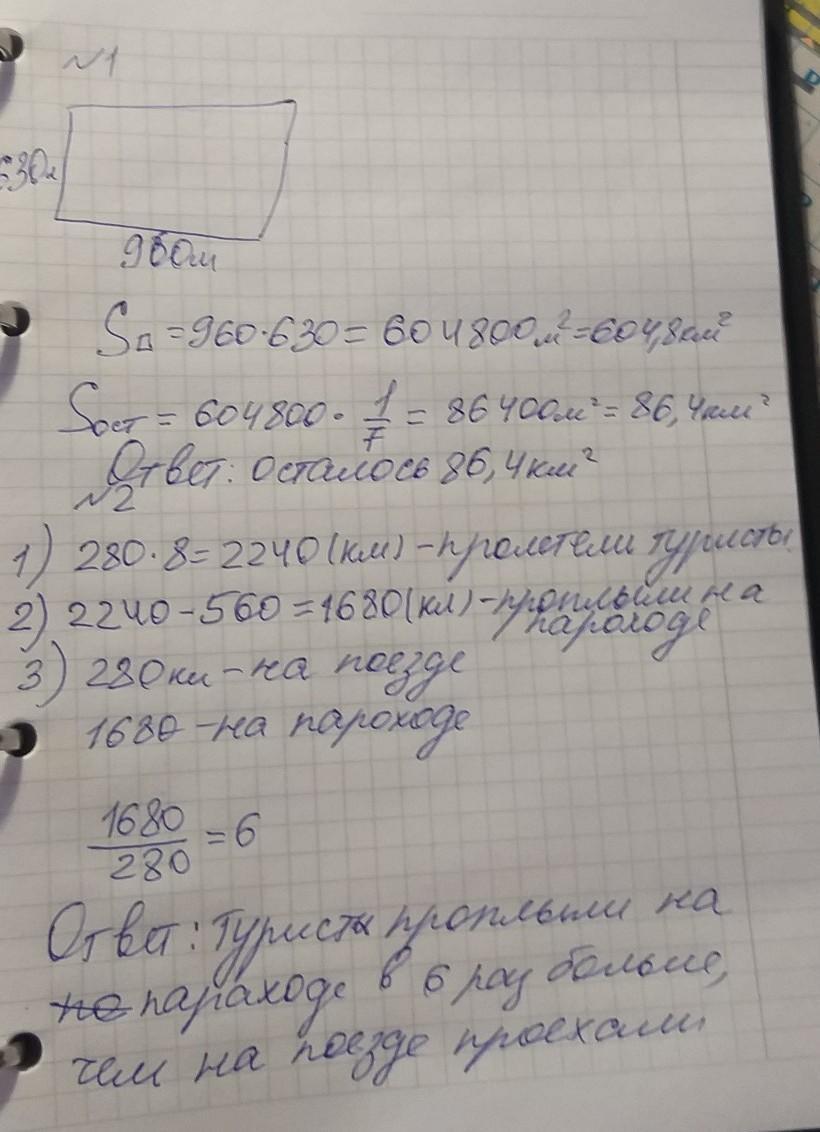 №1
630м
960м
S▯ = 960·630 = 604800м² = 604,8км²
Sост = 604800 · 1/7 = 86400м² = 86,4км²
Ответ: осталось 86,4км²
№2
1) 280·8 = 2240(км) – пролетели туристы
2) 2240 – 560 = 1680(км) – проплыли на
пароходе
3) 280км – на поезде
1680 – на пароходе
1680/280 = 6
Ответ: туристы проплыли на
по параходе в 6 раз больше,
чем на поезде проехали